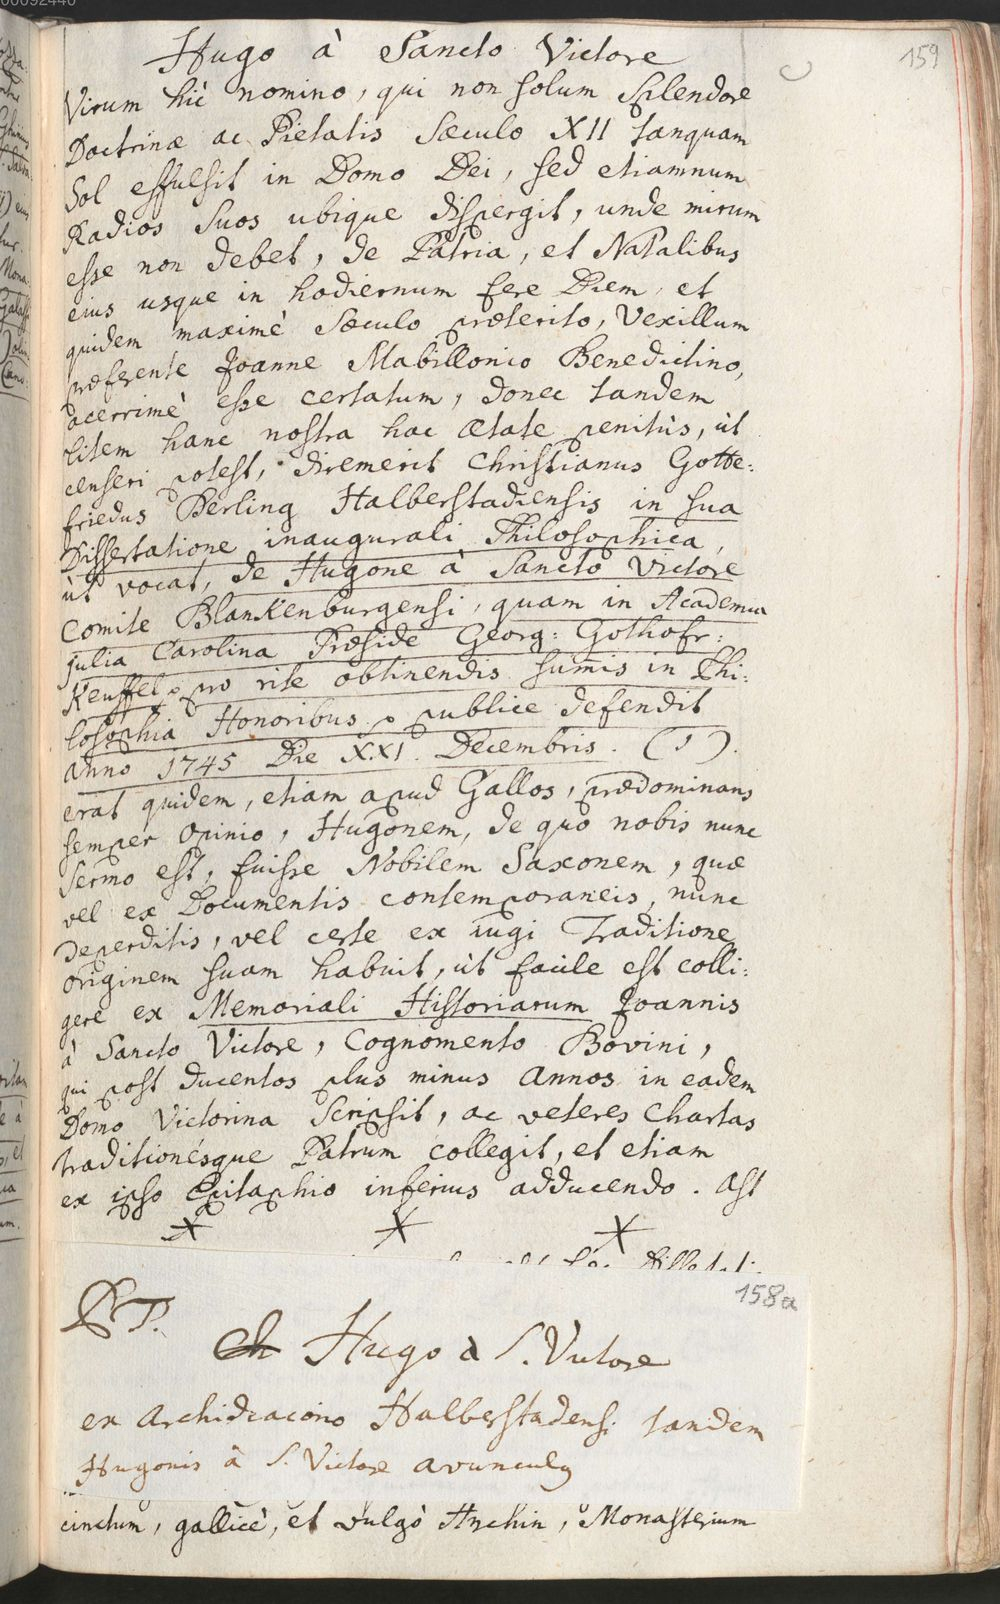 159
Hugo à Sancto Victore
Virum hic nomino, qui non solum Splendore
Doctrinæ ac Pietatis Sæculo XII tanquam
Sol effulsit in Domo Dei, sed etiamnum
Radios suos ubique dispergit, unde mirum
esse non debet, de Patria, et Natalibus
eius usque in hodiernum fere Diem, et
quidem maximè Sæculo præterito, Vexillum
præferente Joanne Mabillonio Benedictino,
acerrimè esse certatum, donec tandem
litem hanc nostra hac Ætate penitùs, ùt
censeri potest, diremerit Christianus Gotte:
friedus Derling Halberstadiensis in sua
Dissertatione inaugurali Philosophica,
ùt vocat, de Hugone à Sancto Victore
Comite Blankenburgensi, quam in Academia
Julia Carolina Præside Georg: Gothofr:
Keuffel, pro rite obtinendis sumis in Phi:
losophia Honoribus, publice defendit
anno 1745 Die XXI. Decembris. (1).
erat quidem, etiam apud Gallos, prædominans
semper opinio, Hugonem, de quo nobis nunc
Sermo est, fuisse Nobilem Saxonem, quæ
vel ex Documentis contemporaneis, nunc
deperditis, vel certe ex iugi Traditione
originem suam habuit, ùt facile est colli:
gere ex Memoriali Historiarum Joannis
à Sancto Victore, Cognomento Bovini,
qui post ducentos plus minus annos in eadem
Domo Victorina scripsit, ac veteres Chartas
traditionésque Patrum collegit, et etiam
ex ipso Epitaphio inferius adducendo. Ast
158a
PT.
Hugo à S. Victore
ex Archidiacono Halberstadensi tandem
Hugonis à S. Victore avunculus
cinctum, gallicè, et vulgò Anchin, Monasterium